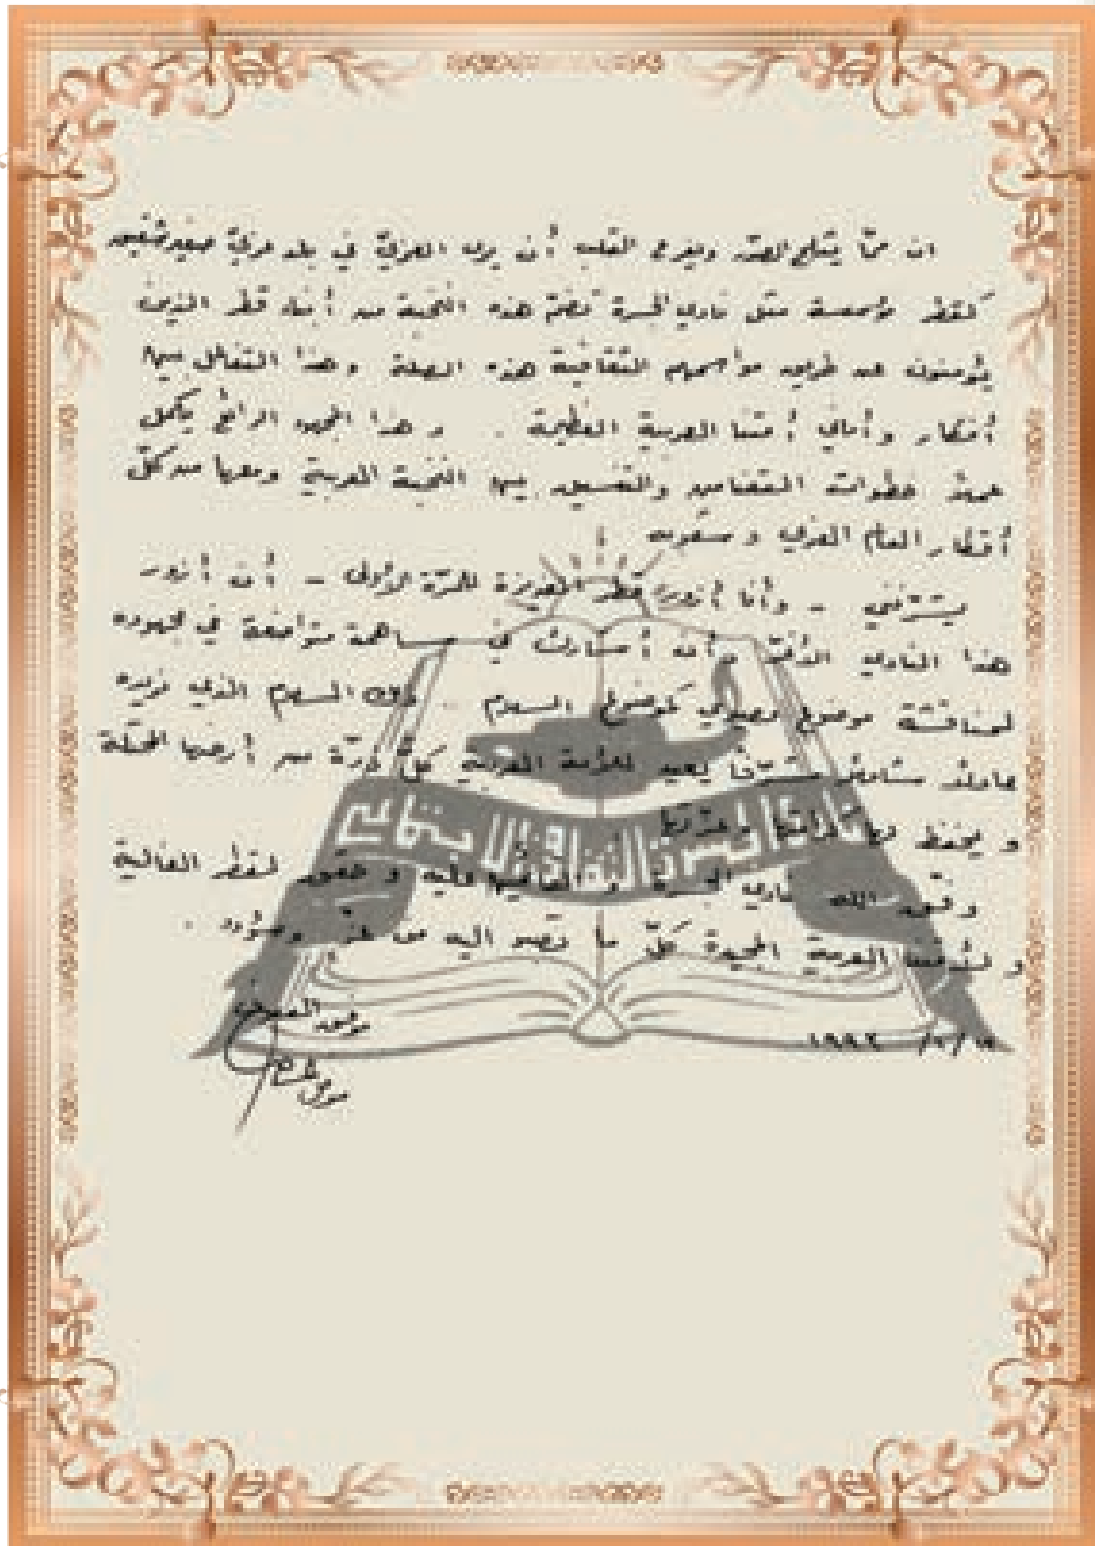 ان ممّا يثلج الصدر ويفرح القلب أن يرى العربيّ في بلد عربيّ صغير شقيق
كقطر مؤسسة مثل نادي الجسرة تضمّ هذه النخبة من أبناء قطر الذين
يؤمنون عن طريق مواسمهم الثقافية هذه الصلة وهذا التفاعل بين
أفكار وأماني أمتنا العربية العظيمة . وهذا الجهد الرائع يكمل
خطوات التضامن والتنسيق بين النخبة العربية ومعها من كلّ
أقطار العالم العربي وشعوبه .
يشرّفني - وأنا أزور قطر العزيزة للمرّة الأولى - أن أزور
هذا النادي وأن أشارك في مساهمة متواضعة في جهوده
لمناقشة موضوع مصيري كموضوع السلام .. ذلك السلام الذي نريده
عادلاً شاملاً مشرّفاً يعيد للأمة العربية كلّ ذرّة من أرضها المحتلة
و يحفظ لها كرامتها وعزّتها
وفّق الله نادي الجسرة و القائمين عليه و حقق لقطر الغالية
و لأمتنا العربية المجيدة كلّ ما تصبو اليه من عزّ وسؤدد .
موفق
١٩٩٢
نادي الجسرة الثقافي الاجتماعي